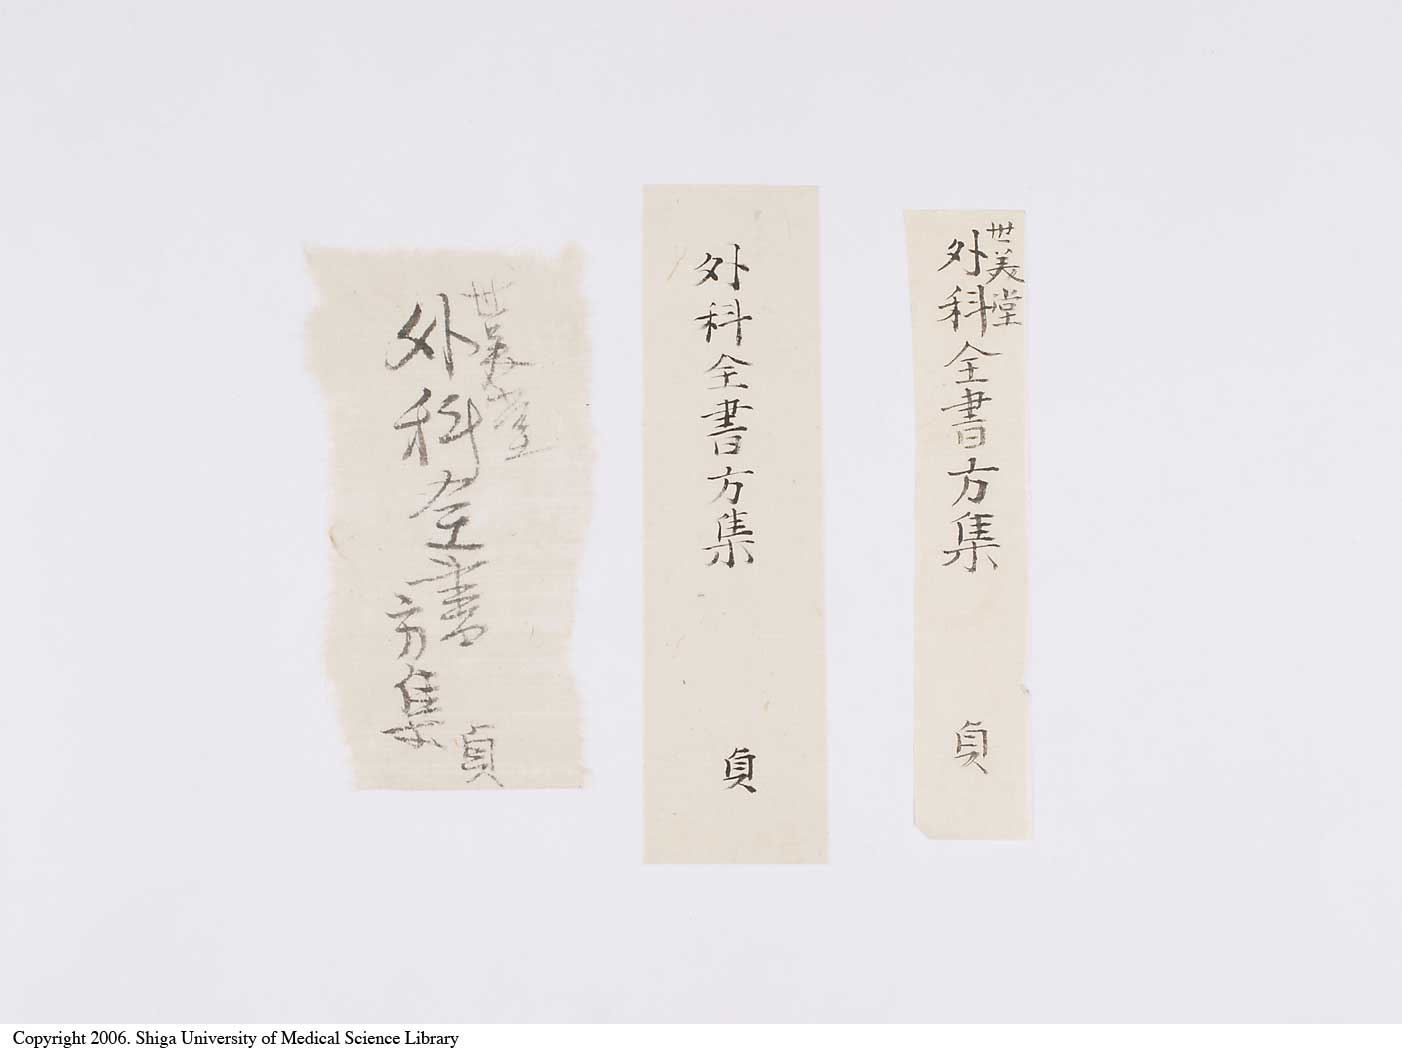 世美堂
外科全書方集
貞
外科全書方集
貞
世美堂
外科全書
方集
貞
Copyright 2006. Shiga University of Medical Science Library